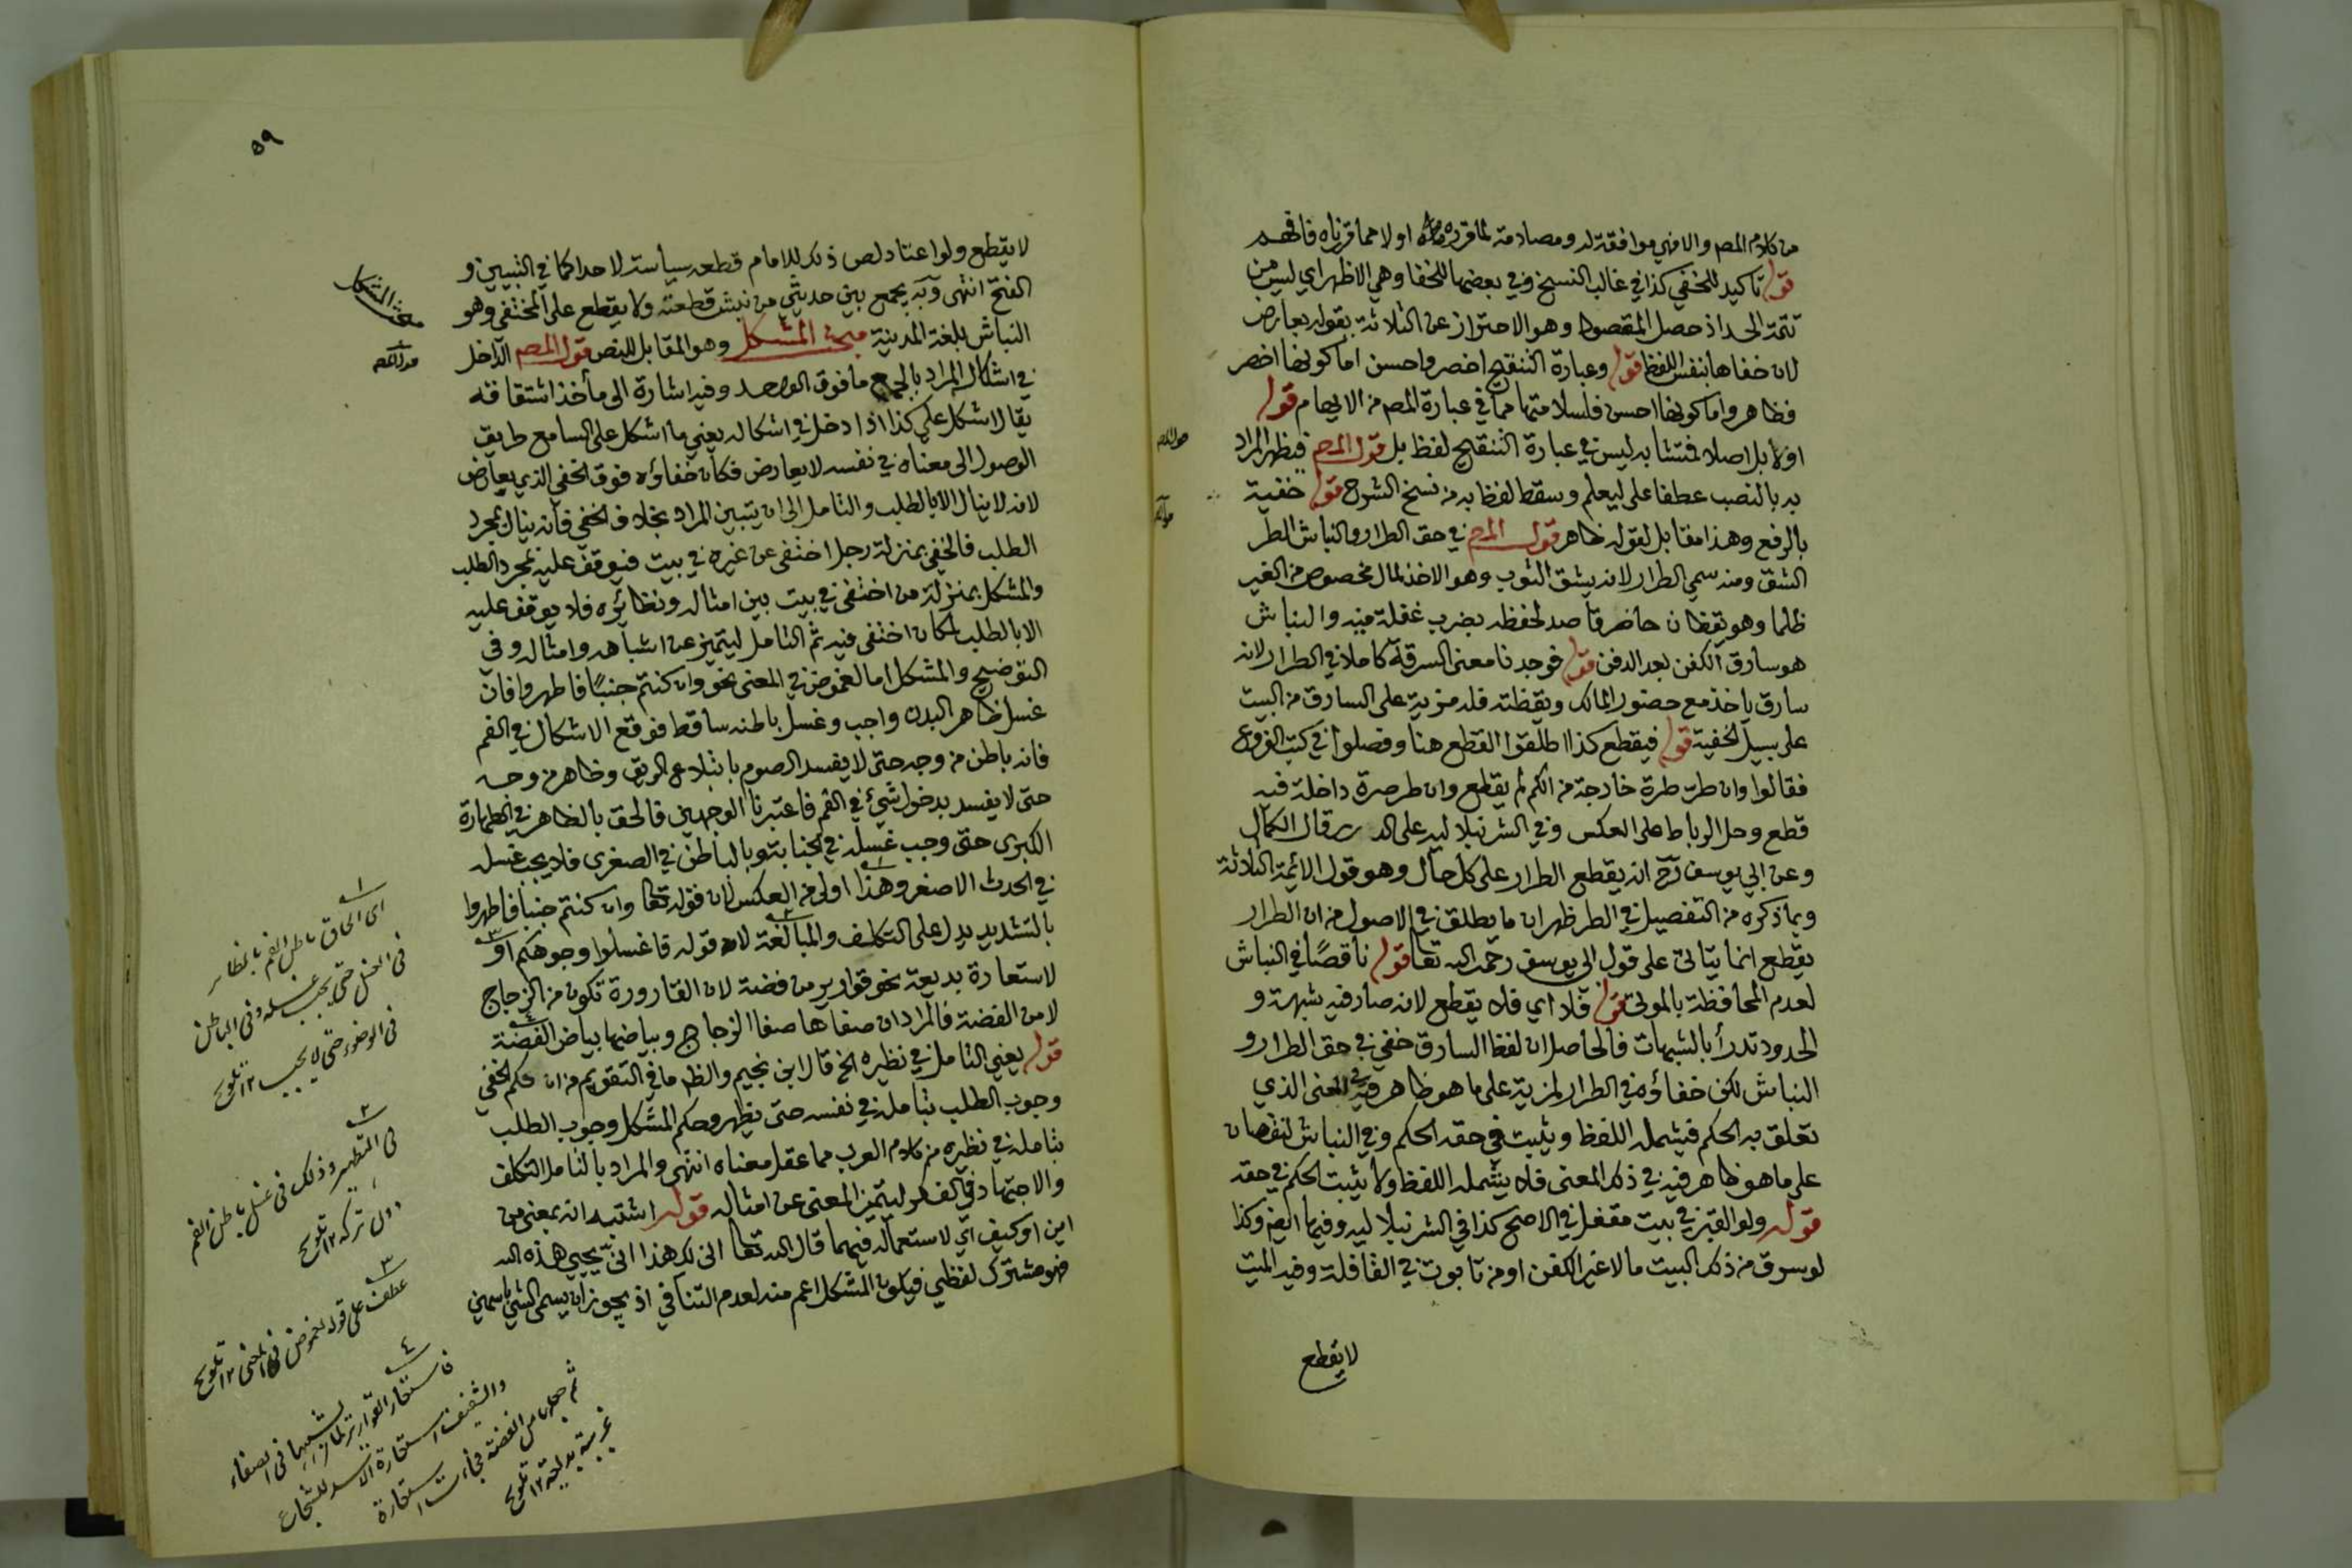 من كلام المص والا فهي موافقة له ومصادمة لما قرره اولا مما قرزناه فافهم
قوله تاكيد للخفي كذا في غالب النسخ وفي بعضها للخفا وهي الاظهر اي ليس من
تتمة الحد اذ حصل المقصود وهو الاحتراز عن الثلاثة بقوله بعارض
لان خفاها بنفس اللفظ قوله وعبارة التنقيح اخصر واحسن اما كونها اخصر
فظاهر واما كونها احسن فلسلامتها مما في عبارة المص من الايهام قوله
اولا بل اصلا فمتشابه ليس في عبارة التنقيح لفظ بل قول المص فيظهر المراد
به بالنصب عطفا على ليعلم وسقط لفظ به من نسخ الشرح قوله خفية
بالرفع وهذا مقابل لقوله ظاهر قول المص في حق الطرار والنباش الطر
الشق ومنه سمي الطرار لانه يشق الثوب وهو الاخذ لمال مخصوص من الغير
ظلما وهو يقظان حاضر قاصد لحفظه بضرب غفلة منه والنباش
هو سارق الكفن بعد الدفن قوله فوجدنا معنى السرقة كاملا في الطرار لانه
سارق ياخذ مع حضور المالك ويقظته فله مزية على السارق من البيت
على سبيل الخفية قوله فيقطع كذا اطلقوا القطع هنا وفصلوا في كتب الفروع
فقالوا وان طر طرة خارجة من الكم لم يقطع وان طر صرة داخلة فيه
قطع وحل الرباط على العكس وفي الشرنبلالية على الدرر قال الكمال
وعن ابي يوسف رح انه يقطع الطرار على كل حال وهو قول الائمة الثلاثة
وبما ذكره من التفصيل في الطر ظهر ان ما يطلق في الاصول من ان الطرار
يقطع انما يتاتى على قول ابي يوسف رحمه الله تعا قوله ناقصًا في النباش
لعدم المحافظة بالموتى قوله فلا اي فلا يقطع لانه صار فيه شبهة و
الحدود تدرأ بالشبهات فالحاصل ان لفظ السارق خفي في حق الطرار و
النباش لكن خفاؤه في الطرار لمزية على ما هو ظاهر فيه في المعنى الذي
تعلق به الحكم فيشمله اللفظ ويثبت في حقه الحكم وفي النباش لنقصان
على ما هو ظاهر فيه في ذلك المعنى فلا يشمله اللفظ ولا يثبت الحكم في حقه
قوله ولو القبر في بيت مقفل في الاصح كذا في الشرنبلالية وفيها ايضا وكذا
لو سرق من ذلك البيت مالا غير الكفن او من تابوت في القافلة وفيه الميت
لا يقطع
٥٩
لا يقطع ولو اعتاد لص ذلك للامام قطعه سياسة لا حدا كما في التبيين و
الفتح انتهى وبه يجمع بين حديثي من نبش قطعته ولا يقطع على المختفي وهو
النباش بلغة المدينة مبحث المشكل وهو المقابل للنص قول المص الداخل
في اشكال المراد بالجمع ما فوق الواحد وفيه اشارة الى مأخذ اشتقاقه
يقال اشكل علي كذا اذا دخل في اشكاله يعني ما اشكل على السامع طريق
الوصول الى معناه في نفسه لا بعارض فكان خفاؤه فوق الخفي الذي بعارض
لانه لا ينال الا بالطلب والتامل الى ان يتبين المراد بخلاف الخفي فأنه ينال بمجرد
الطلب فالخفي بمنزلة رجل اختفى عن غيره في بيت فيوقف عليه بمجرد الطلب
والمشكل بمنزلة من اختفى في بيت بين امثاله ونظائره فلا يوقف عليه
الا بالطلب لمكان اختفى فيه ثم التامل ليتميز عن اشباهه وامثاله وفي
التوضيح والمشكل اما لغموض في المعنى نحو وان كنتم جنبًا فاطهروا فان
غسل ظاهر البدن واجب وغسل باطنه ساقط فوقع الاشكال في الفم
فانه باطن من وجه حتى لا يفسد الصوم بابتلاع الريق وظاهر من وجه
حتى لا يفسد بدخول شيئ في الفم فاعتبرنا الوجهين فالحق بالظاهر في الطهارة
الكبرى حتى وجب غسله في الجنابة وبالباطن في الصغرى فلا يجب غسله
في الحدث الاصغر وهذا اولى من العكس لان قوله تعا وان كنتم جنبا فاطهروا
بالتشديد يدل على التكلف والمبالغة لا قوله فاغسلوا وجوهكم او
لاستعارة بديعة نحو قوارير من فضة لان القارورة تكون من الزجاج
لا من الفضة فالمراد ان صفاها صفا الزجاج وبياضها بياض الفضة
قوله يعني التامل في نظيره الخ قال ابن نجيم والظ ما في التقويم من ان حكم الخفي
وجوب الطلب بتامله في نفسه حتى يظهر وحكم المشكل وجوب الطلب
بتامله في نظيره من كلام العرب مما عقل معناه انتهى والمراد بالتامل التكلف
والاجتهاد في الفكر ليتميز المعنى عن امثاله قوله اشتبه انه بمعنى من
اين او كيف اي لاستعماله فيهما قال الله تعا انى لك هذا انى يحيي هذه الله
فهو مشترك لفظي فيكون المشكل اعم منه لعدم التنافي اذ يجوز ان يسمى الشيئ باسمين
١
اي الحاق باطن الفم بالظاهر
في الغسل حتى يجب غسله وفي الباطن
في الوضوء حتى لا يجب ١٢ تلويح
٢
في التطهير وذلك في غسل باطن الفم
دون تركه ١٢ تلويح
٣
عطف على قوله لغموض في المعنى ١٢ تلويح
٤
فاستعار القوارير لما يشبهها في الصفاء
والشفيف استعارة الاسد للشجاع
ثم جعلها من الفضة فجاءت استعارة
غريبة بديعة ١٢ تلويح